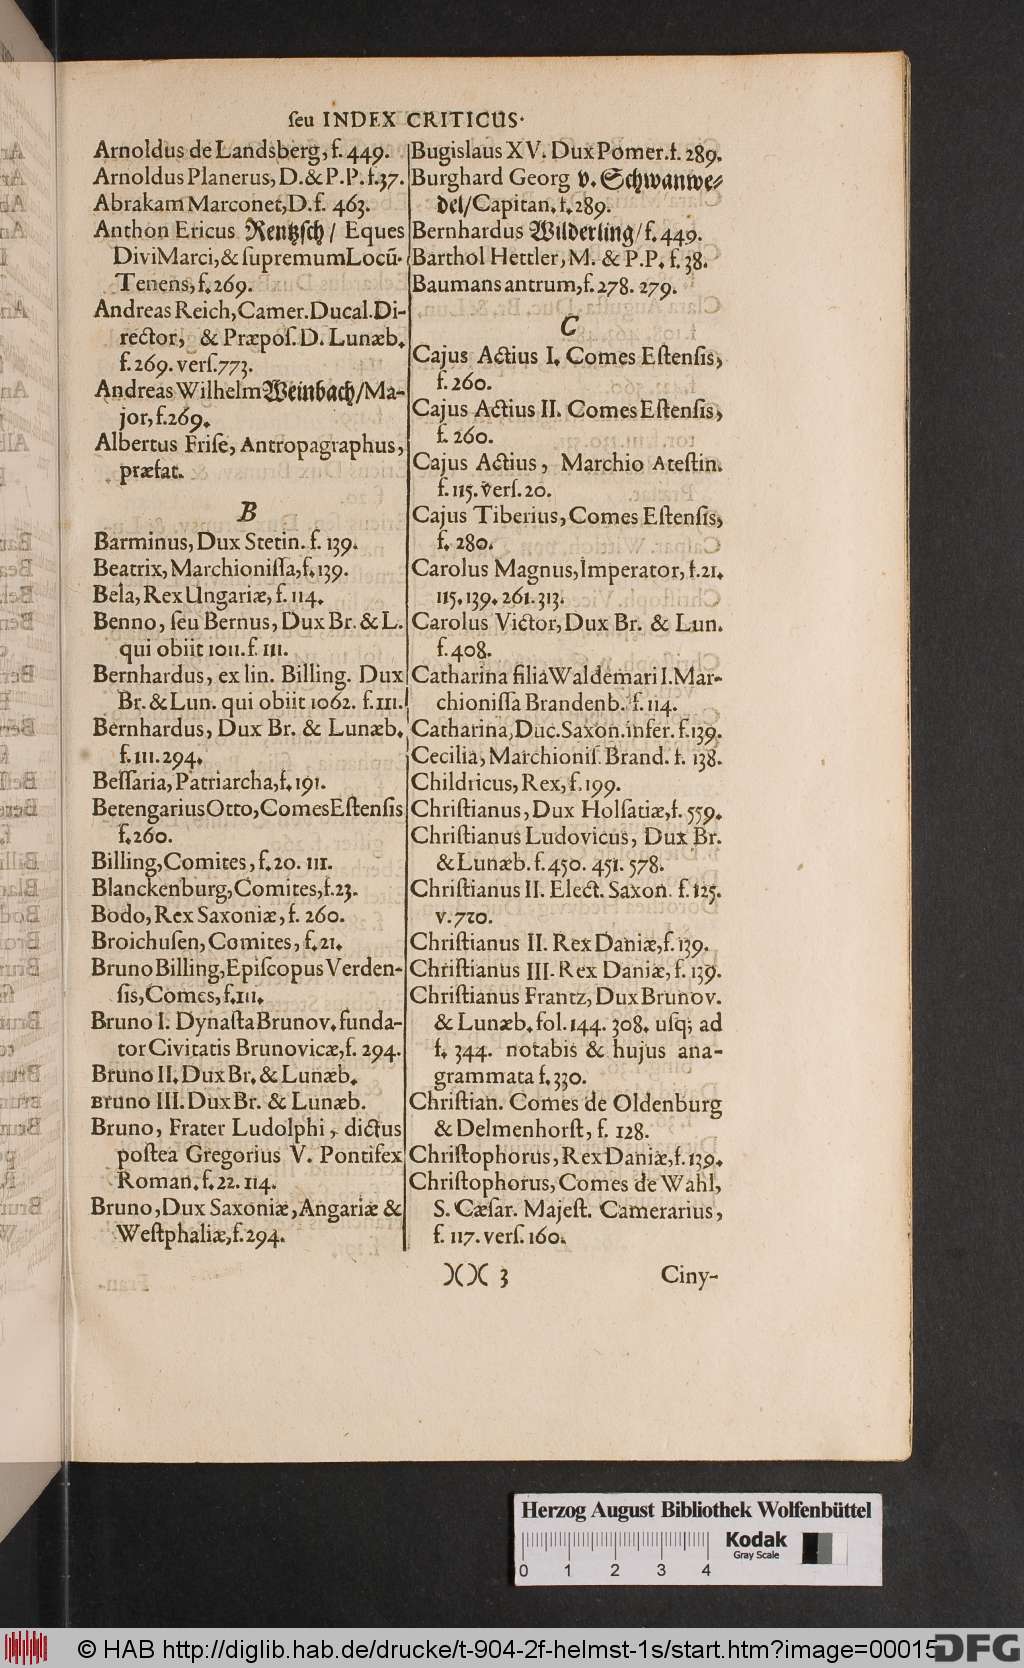 ſeu INDEX CRITICUS.
Arnoldus de Landsberg, f. 449.
Arnoldus Planerus, D. & P. P. f. 37.
Abrakam Marconet, D. f. 463.
Anthon Ericus Rentzſch / Eques
Divi Marci, & ſupremum Locũ-
Tenens, f. 269.
Andreas Reich, Camer. Ducal. Di-
rector, & Præpoſ. D. Lunæb.
f. 269. verſ. 773.
Andreas Wilhelm Weinbach / Ma-
jor, f. 269.
Albertus Friſe, Antropagraphus,
præfat.
B
Barminus, Dux Stetin. f. 139.
Beatrix, Marchioniſſa, f. 139.
Bela, Rex Ungariæ, f. 114.
Benno, ſeu Bernus, Dux Br. & L.
qui obiit 1011. f. 111.
Bernhardus, ex lin. Billing. Dux
Br. & Lun. qui obiit 1062. f. 111.
Bernhardus, Dux Br. & Lunæb.
f. 111. 294.
Beſſaria, Patriarcha, f. 191.
Betengarius Otto, Comes Eſtenſis
f. 260.
Billing, Comites, f. 20. 111.
Blanckenburg, Comites, f. 23.
Bodo, Rex Saxoniæ, f. 260.
Broichuſen, Comites, f. 21.
Bruno Billing, Epiſcopus Verden-
ſis, Comes, f. 111.
Bruno I. Dynaſta Brunov. funda-
tor Civitatis Brunovicæ, f. 294.
Bruno II. Dux Br. & Lunæb.
Bruno III. Dux Br. & Lunæb.
Bruno, Frater Ludolphi, dictus
poſtea Gregorius V. Pontifex
Roman. f. 22. 114.
Bruno, Dux Saxoniæ, Angariæ &
Weſtphaliæ, f. 294.
Bugislaus XV. Dux Pomer. f. 289.
Burghard Georg v. Schwanwe-
del / Capitan. f. 289.
Bernhardus Wilderling / f. 449.
Barthol Hettler, M. & P. P. f. 38.
Baumans antrum, f. 278. 279.
C
Cajus Actius I. Comes Eſtenſis,
f. 260.
Cajus Actius II. Comes Eſtenſis,
f. 260.
Cajus Actius, Marchio Ateſtin.
f. 115. verſ. 20.
Cajus Tiberius, Comes Eſtenſis,
f. 280.
Carolus Magnus, Imperator, f. 21.
115. 139. 261. 313.
Carolus Victor, Dux Br. & Lun.
f. 408.
Catharina filia Waldemari I. Mar-
chioniſſa Brandenb. f. 114.
Catharina, Duc. Saxon. infer. f. 139.
Cecilia, Marchioniſ. Brand. f. 138.
Childricus, Rex, f. 199.
Chriſtianus, Dux Holſatiæ, f. 559.
Chriſtianus Ludovicus, Dux Br.
& Lunæb. f. 450. 451. 578.
Chriſtianus II. Elect. Saxon. f. 125.
v. 720.
Chriſtianus II. Rex Daniæ, f. 139.
Chriſtianus III. Rex Daniæ, f. 139.
Chriſtianus Frantz, Dux Brunov.
& Lunæb. fol. 144. 308. uſq; ad
f. 344. notabis & hujus ana-
grammata f. 330.
Chriſtian. Comes de Oldenburg
& Delmenhorſt, f. 128.
Chriſtophorus, Rex Daniæ, f. 139.
Chriſtophorus, Comes de Wahl,
S. Cæſar. Majeſt. Camerarius,
f. 117. verſ. 160.
)( )( 3 Ciny-
Herzog August Bibliothek Wolfenbüttel
Kodak
Gray Scale
0 1 2 3 4
© HAB http://diglib.hab.de/drucke/t-904-2f-helmst-1s/start.htm?image=00015
DFG